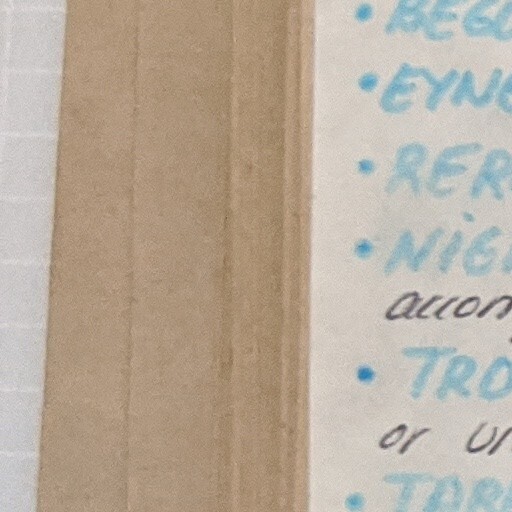 • BEGO
• EYNE
• RER
• NiGH
accom
• TRO
or un
• TAR